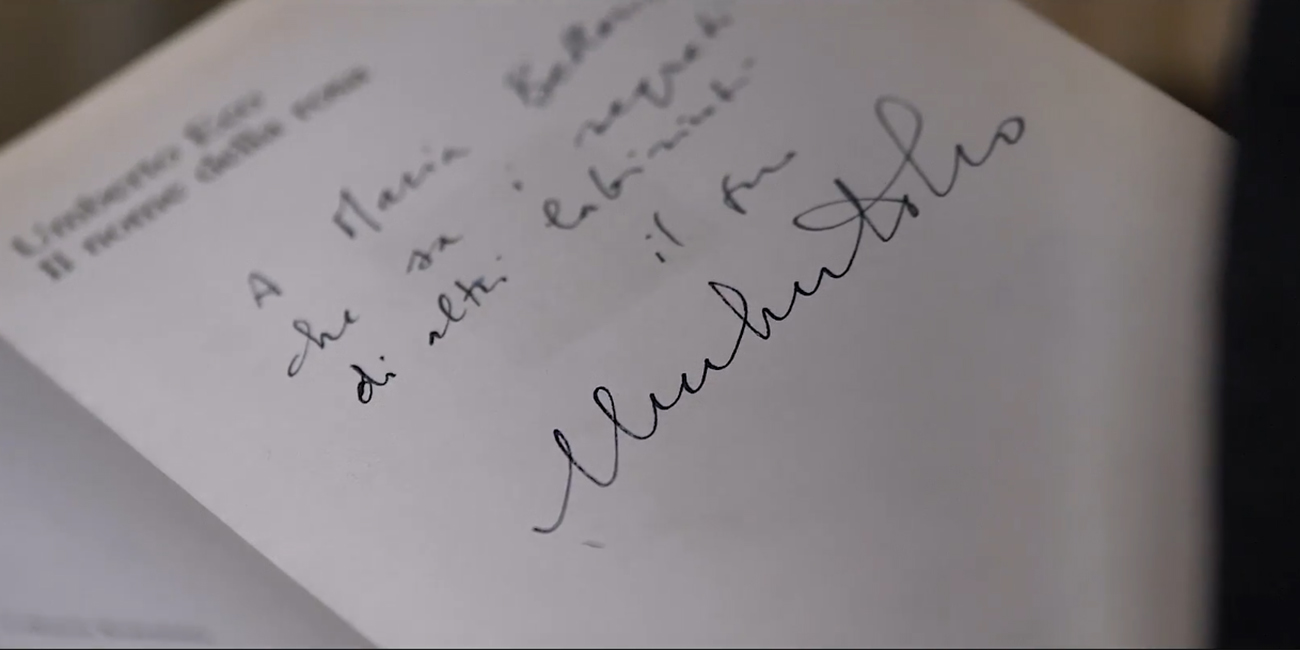 Umberto Eco
Il nome della rosa
A Maria
che sa i segreti
di altri labirinti
il suo
Umberto Eco